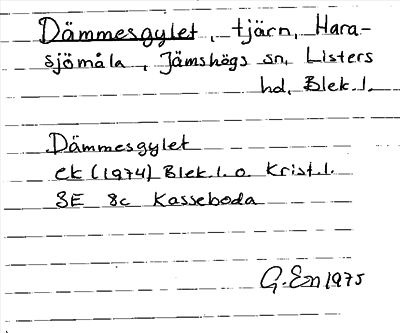 Dämmesgylet, tjärn, Hara-
sjömåla, Jämshögs sn, Listers
hd, Blek. l.
Dämmesgylet
ek (1974) Blek. l. o. Krist. l.
3E 8c Kasseboda
G. En 1975